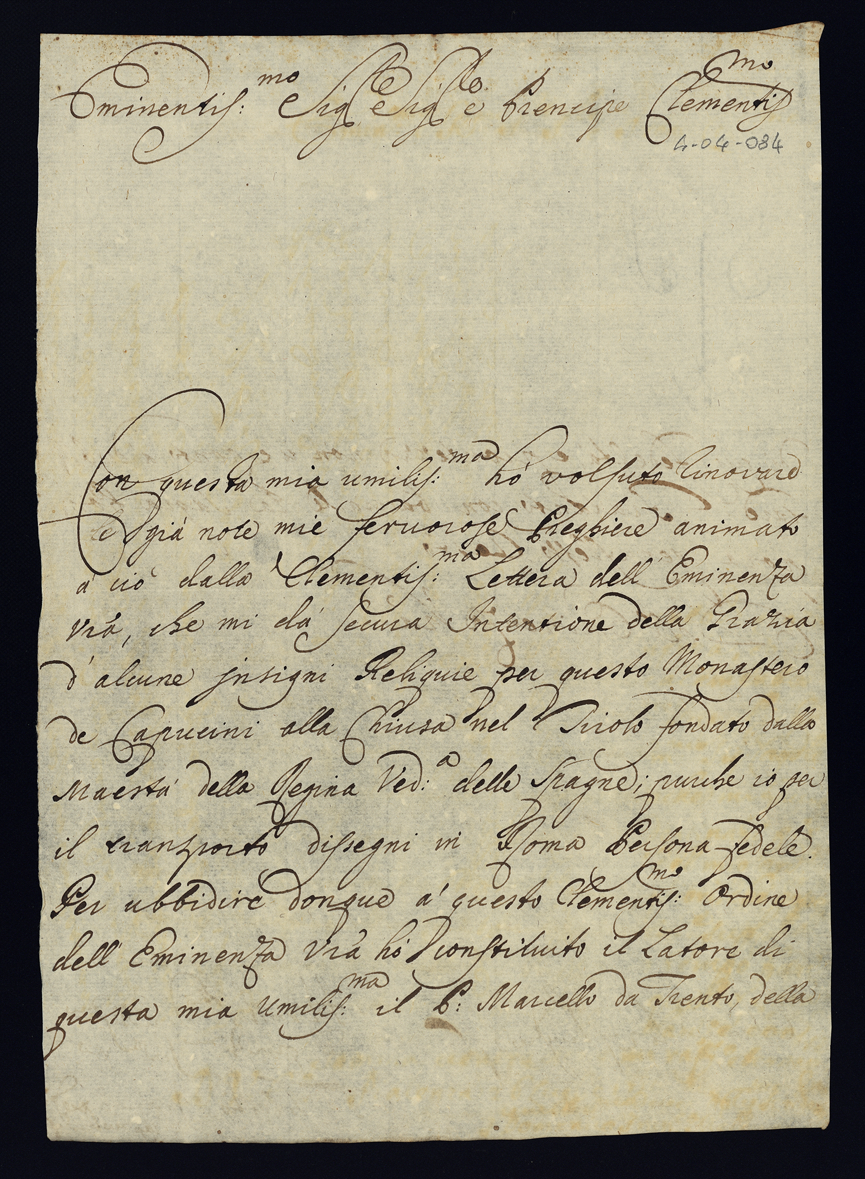 Eminentis:mo Sig.re Sig.re e Prencipe Clementismo
4-04-084
Con questa mia umilis:ma hó volsuto rinovare
le giá note mie fervorose Preghiere animato
a ció dalla Clementis:ma Lettera dell'Eminenza
Vrã, che mi dá secura Intentione della Grazia
d'alcune insigni Reliquie per questo Monastero
de Capucini alla Chiusa nel Tirolo fondato dalla
Maestá della Regina Ved:a delle Spagne; purche io per
il transporto dissegni in Roma Persona fedele.
Per ubbidire donque á questo Clementis:mo Ordine
dell'Eminenza Vrã hó constituito il Latore di
questa mia Umilis:ma il P: Marcello da Trento, della